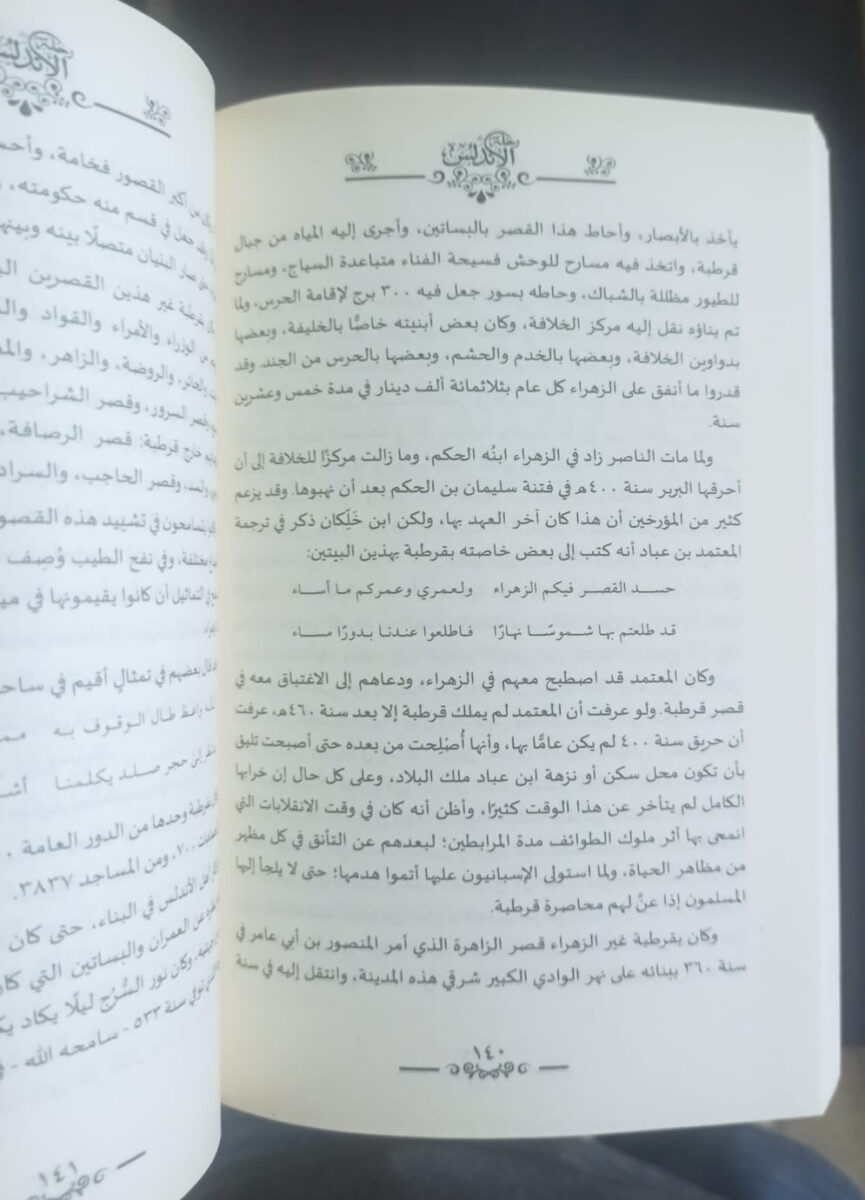 رحلة الأندلس
يأخذ بالأبصار، وأحاط هذا القصر بالبساتين، وأجرى إليه المياه من جبال
قرطبة، واتخذ فيه مسارح للوحش فسيحة الفناء متباعدة السياج، ومسارح
للطيور مظللة بالشباك، وحاطه بسور جعل فيه ٣٠٠ برج لإقامة الحرس، ولما
تم بناؤه نقل إليه مركز الخلافة، وكان بعض أبنيته خاصًّا بالخليفة، وبعضها
بدواوين الخلافة، وبعضها بالخدم والحشم، وبعضها بالحرس من الجند. وقد
قدروا ما أنفق على الزهراء كل عام بثلاثمائة ألف دينار في مدة خمس وعشرين
سنة.
ولما مات الناصر زاد في الزهراء ابنُه الحكم، وما زالت مركزًا للخلافة إلى أن
أحرقها البربر سنة ٤٠٠هـ في فتنة سليمان بن الحكم بعد أن نهبوها. وقد يزعم
كثير من المؤرخين أن هذا كان آخر العهد بها، ولكن ابن خَلِّكان ذكر في ترجمة
المعتمد بن عباد أنه كتب إلى بعض خاصته بقرطبة بهذين البيتين:
حسد القصر فيكم الزهراء ولعمري وعمركم ما أساء
قد طلعتم بها شموسًا نهارًا فاطلعوا عندنا بدورًا مساء
وكان المعتمد قد اصطبح معهم في الزهراء، ودعاهم إلى الاغتباق معه في
قصر قرطبة. ولو عرفت أن المعتمد لم يملك قرطبة إلا بعد سنة ٤٦٠هـ، عرفت
أن حريق سنة ٤٠٠ لم يكن عامًّا بها، وأنها أُصْلِحت من بعده حتى أصبحت تليق
بأن تكون محل سكن أو نزهة ابن عباد ملك البلاد، وعلى كل حال إن خرابها
الكامل لم يتأخر عن هذا الوقت كثيرًا، وأظن أنه كان في وقت الانقلابات التي
انمحى بها أثر ملوك الطوائف مدة المرابطين؛ لبعدهم عن التأنق في كل مظهر
من مظاهر الحياة، ولما استولى الإسبانيون عليها أتموا هدمها؛ حتى لا يلجأ إليها
المسلمون إذا عنَّ لهم محاصرة قرطبة.
وكان بقرطبة غير الزهراء قصر الزاهرة الذي أمر المنصور بن أبي عامر في
سنة ٣٦٠ ببنائه على نهر الوادي الكبير شرقي هذه المدينة، وانتقل إليه في سنة
١٤٠
الأندلس
من أكبر القصور فخامة،
جعل في قسم منه حكومته،
صار البنيان متصلًا بينه
بقرطبة غير هذين القصرين
من الوزراء والأمراء والقواد
والحائر، والروضة، والزاهر،
وقصر السرور، وقصر الشراحيب
خارج قرطبة: قصر الرصافة،
وقصر الحاجب،
يتسامحون في تشييد هذه القصور
مختلفة، وفي نفح الطيب وُصِف
التماثيل أن كانوا يقيمونها في
قال بعضهم في تمثالٍ أقيم في
واعظ طال الوقوف به
إلى حجر صلد يكلمنا
بقرطبة وحدها من الدور العامة
٧٠٠، ومن المساجد ٣٨٣٧.
أهل الأندلس في البناء، حتى كان
من العمران والبساتين التي
وكان نور السُّرُج ليلًا يكاد
توفي سنة ٥٣٣ - سامحه الله -
١٤١